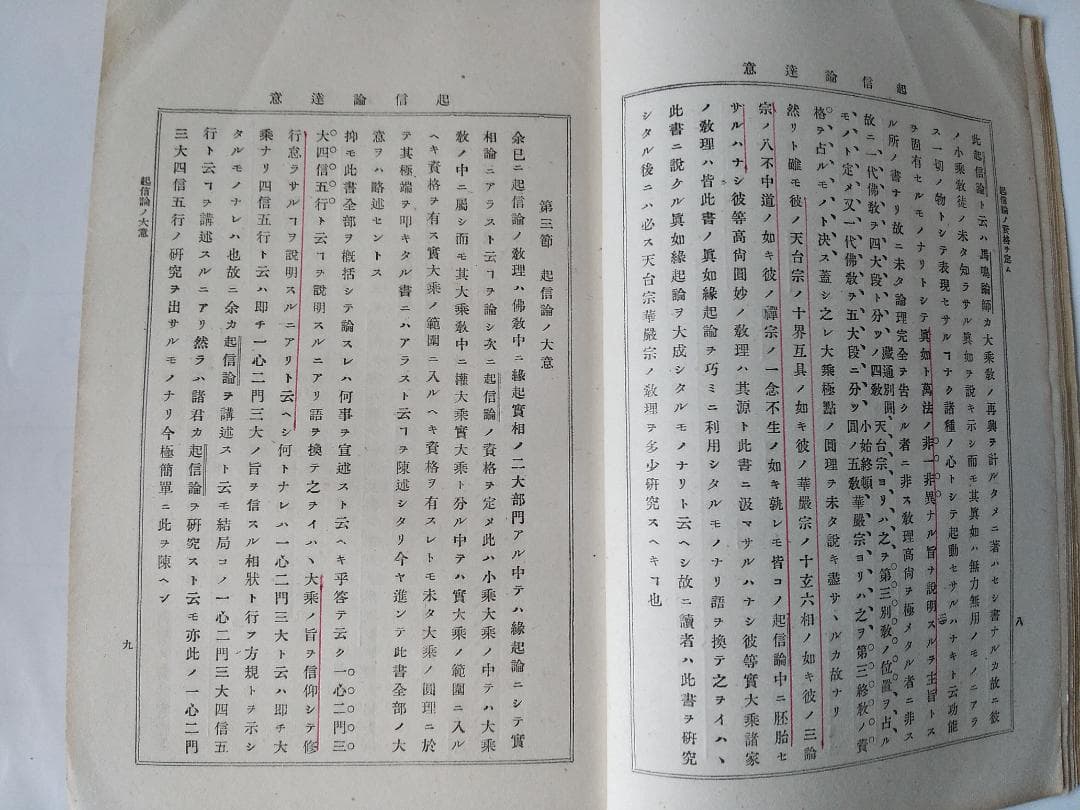 起信論達意
起信論ノ資格ヲ定ム
此起信論ト云ハ馬鳴論師カ大乘敎ノ再興ヲ計ルタメニ著ハセシ書ナルカ故ニ彼
ノ小乘敎徒ノ未タ知ラサル眞如ヲ說キ示シ而モ其眞如ハ無力無用ノモノニアラ
ス一切ノ物トシテ表現セサルヿナク諸種ノ心トシテ起動セサルハナキト云功能
ヲ固有セルモノナリトシテ眞如ト萬法ノ非一非異ナル旨ヲ說明スルヲ主旨トス
ル所ノ書ナリ故ニ未タ論理完全ヲ告クル者ニ非ス敎理高尙ヲ極メタル者ニ非ス
故ニ一代佛敎ヲ四大段ト分ツノ四敎藏通別圓、天台宗ヨリハ之ヲ第三別敎ノ位置ヲ占ル
モノト定メ又一代佛敎ヲ五大段ニ分ツノ五敎小始終頓圓、華嚴宗ヨリハ之ヲ第三終敎ノ資
格ヲ占ルモノト決ス蓋シ之レ大乘極點ノ圓理ヲ未タ說キ盡サヽルカ故ナリ
然リト雖モ彼ノ天台宗ノ十界互具ノ如キ彼ノ華嚴宗ノ十玄六相ノ如キ彼ノ三論
宗ノ八不中道ノ如キ彼ノ禪宗ノ一念不生ノ如キ孰レモ皆コノ起信論中ニ胚胎セ
サルハナシ彼等高尙圓妙ノ敎理ハ其源ト此書ニ汲マサルハナシ彼等實大乘諸家
ノ敎理ハ皆此書ノ眞如緣起論ヲ巧ミニ利用シタルモノナリ語ヲ換テ之ヲイハヽ
此書ニ說ケル眞如緣起論ヲ大成シタルモノナリト云ヘシ故ニ讀者ハ此書ヲ硏究
シタル後ニハ必ス天台宗華嚴宗ノ敎理ヲ多少硏究スヘキヿ也
八
起信論達意
第三節　起信論ノ大意
余已ニ起信論ノ敎理ハ佛敎中ニ緣起實相ノ二大部門アル中テハ緣起論ニシテ實
相論ニアラスト云ヿヲ論シ次ニ起信論ノ資格ヲ定メ此ハ小乘大乘ノ中テハ大乘
敎ノ中ニ屬シ而モ其大乘敎中ニ權大乘實大乘ト分ル中テハ實大乘ノ範圍ニ入ル
ヘキ資格ヲ有ス實大乘ノ範圍ニ入ルヘキ資格ヲ有スレトモ未タ大乘ノ圓理ニ於
テ其極端ヲ叩キタル書ニハアラスト云ヿヲ陳述シタリ今ヤ進ンテ此書全部ノ大
意ヲハ略述セントス
抑モ此書全部ヲ槪括シテ論スレハ何事ヲ宣述スト云ヘキ乎答テ云ク一心二門三
大四信五行ト云ヿヲ說明スルニアリ語ヲ換テ之ヲイハヽ大乘ノ旨ヲ信仰シテ修
行怠ラサルヿヲ說明スルニアリト云ヘシ何トナレハ一心二門三大ト云ハ卽チ大
乘ナリ四信五行ト云ハ卽チ一心二門三大ノ旨ヲ信スル相狀ト行フ方規トヲ示シ
タルモノナレハ也故ニ余カ起信論ヲ講述スト云モ結局コノ一心二門三大四信五
行ト云ヿヲ講述スルニアリ然ラハ諸君カ起信論ヲ硏究スト云モ亦此ノ一心二門
三大四信五行ノ硏究ヲ出サルモノナリ今極簡單ニ此ヲ陳ヘン
起信論ノ大意
九